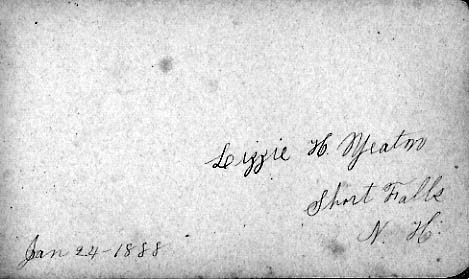 Lizzie H. Yeaton
Short Falls
N. H.
Jan 24-1888